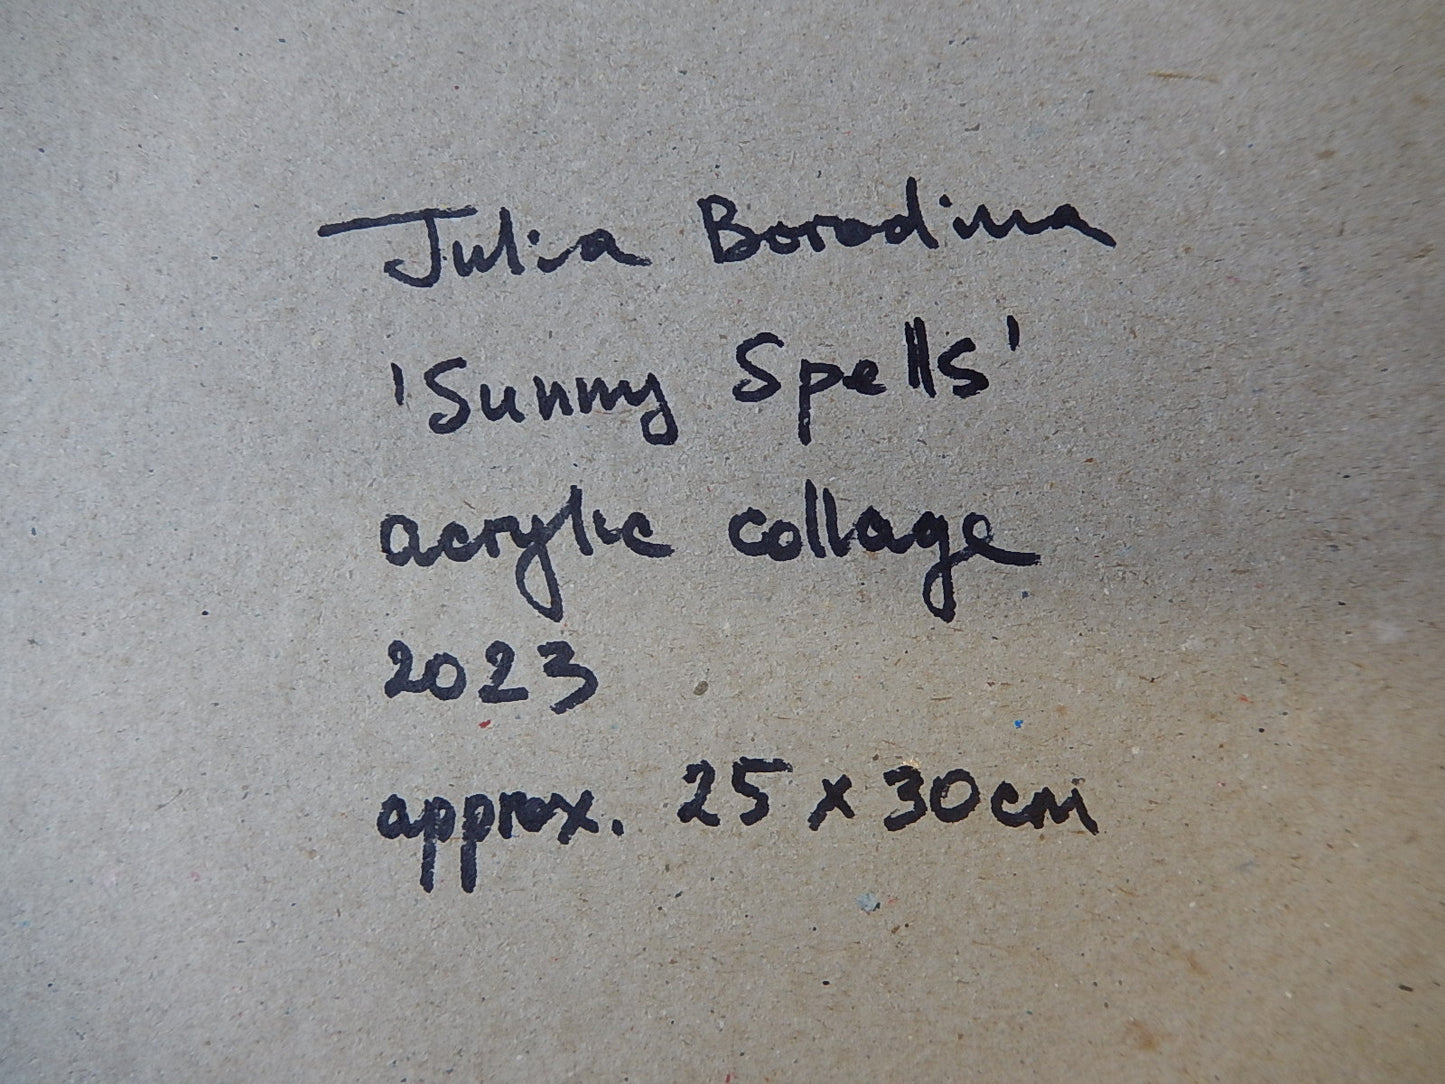 Julia Borodina
'Sunny Spells'
acrylic collage
2023
approx. 25 x 30cm